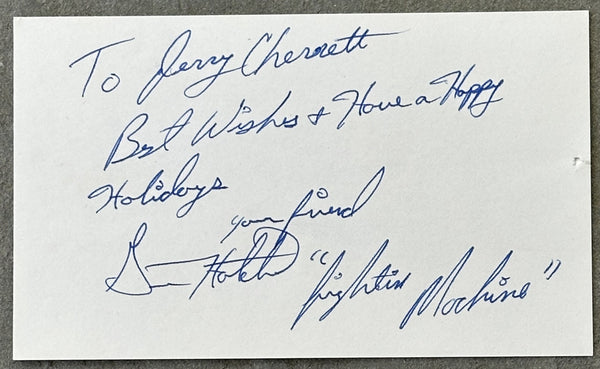 To Jerry Cherrett
Best Wishes + Have a Happy
Holidays
your friend
"Fightin Machine"